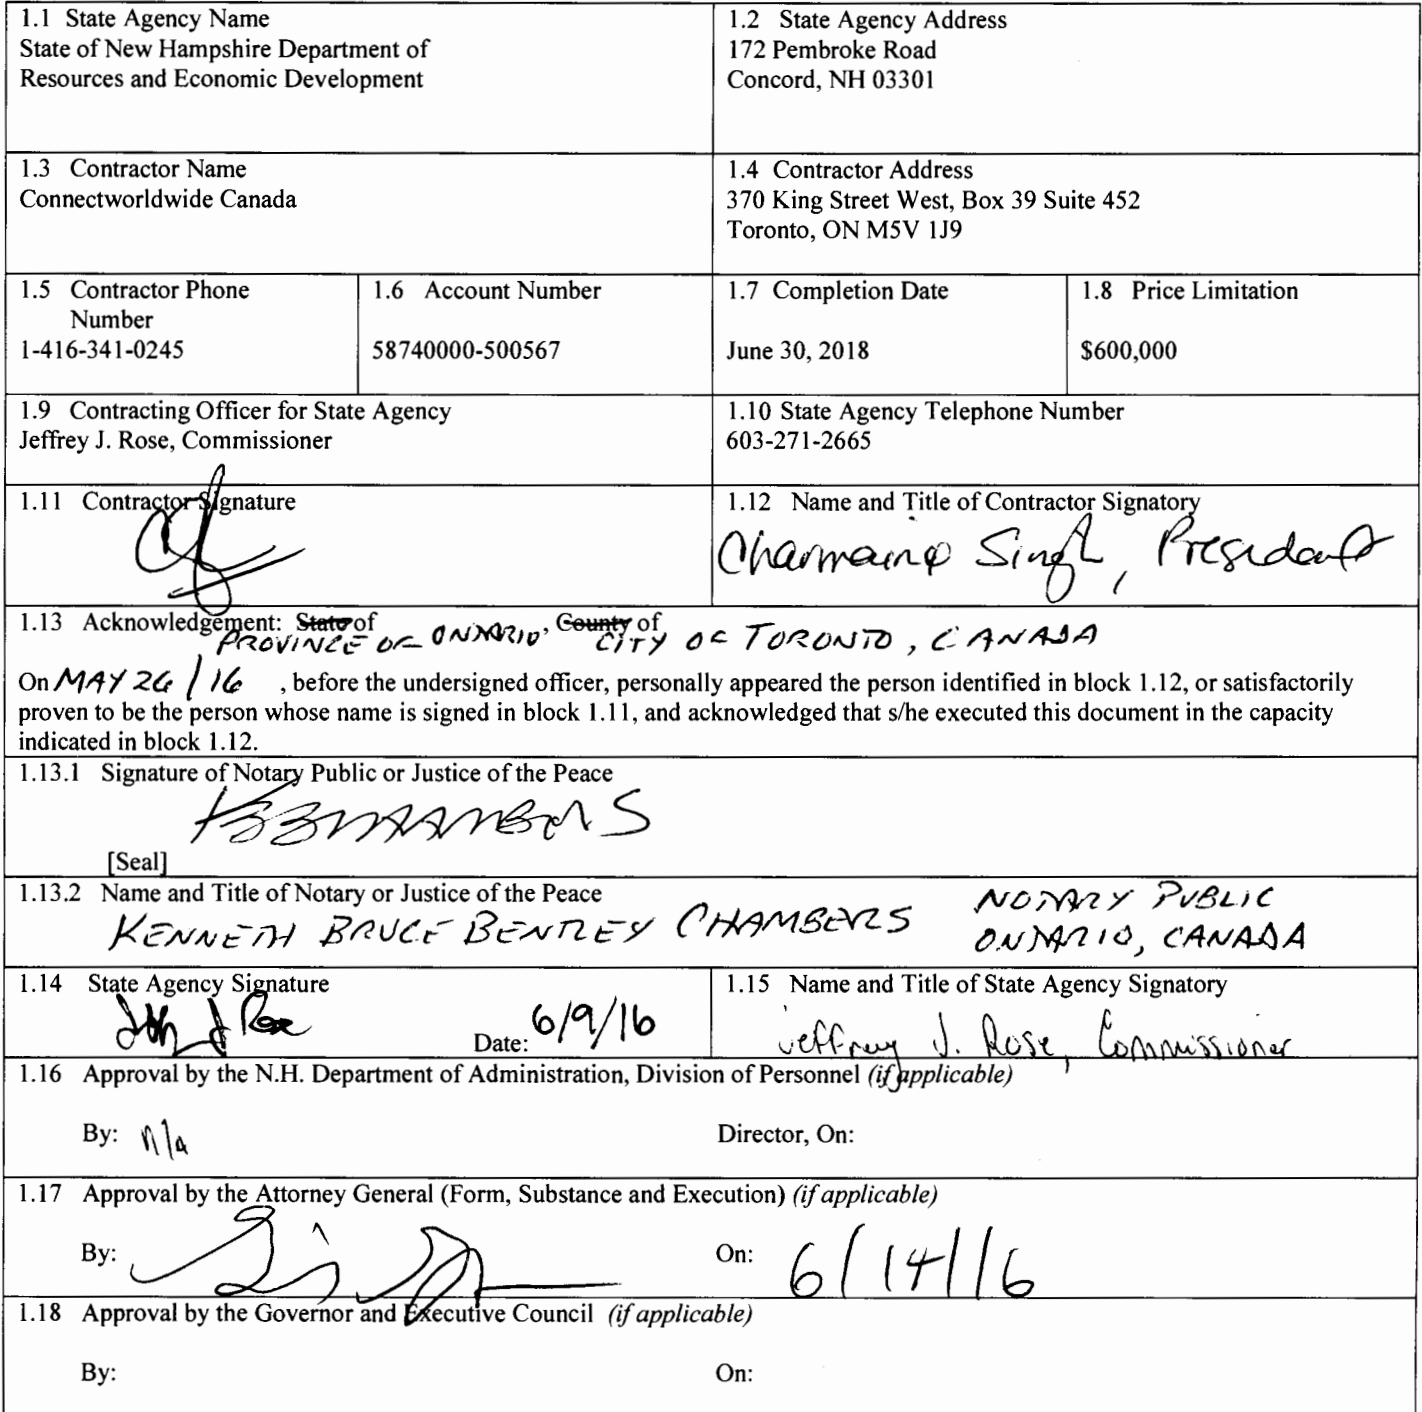 1.1 State Agency Name
State of New Hampshire Department of
Resources and Economic Development
1.2 State Agency Address
172 Pembroke Road
Concord, NH 03301
1.3 Contractor Name
Connectworldwide Canada
1.4 Contractor Address
370 King Street West, Box 39 Suite 452
Toronto, ON M5V 1J9
1.5 Contractor Phone
Number
1-416-341-0245
1.6 Account Number
58740000-500567
1.7 Completion Date
June 30, 2018
1.8 Price Limitation
$600,000
1.9 Contracting Officer for State Agency
Jeffrey J. Rose, Commissioner
1.10 State Agency Telephone Number
603-271-2665
1.11 Contractor Signature
1.12 Name and Title of Contractor Signatory
Charmaine Singh, President
1.13 Acknowledgement: State of , County of
PROVINCE OF ONTARIO CITY OF TORONTO, CANADA
On MAY 26/16 , before the undersigned officer, personally appeared the person identified in block 1.12, or satisfactorily
proven to be the person whose name is signed in block 1.11, and acknowledged that s/he executed this document in the capacity
indicated in block 1.12.
1.13.1 Signature of Notary Public or Justice of the Peace
[Seal]
1.13.2 Name and Title of Notary or Justice of the Peace
KENNETH BRUCE BENTLEY CHAMBERS
NOTARY PUBLIC
ONTARIO, CANADA
1.14 State Agency Signature
Date: 6/9/16
1.15 Name and Title of State Agency Signatory
Jeffrey J. Rose, Commissioner
1.16 Approval by the N.H. Department of Administration, Division of Personnel (if applicable)
By: n/a Director, On:
1.17 Approval by the Attorney General (Form, Substance and Execution) (if applicable)
By: On: 6/14/16
1.18 Approval by the Governor and Executive Council (if applicable)
By: On: